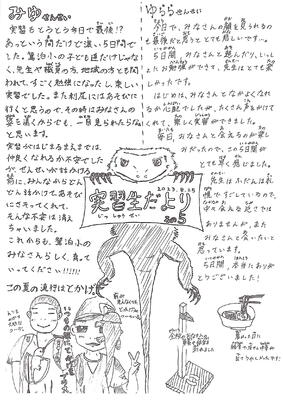 みゆせんせい
実習もとうとう今日で最後!?
あっという間だけど濃い5日間で
した。鷲泊小の子ども達だけじゃな
く、先生や職員の方、地域の方とも関
われて、すごく勉強になったし、楽しい
実習でした。また利尻にはあそびに
行くと思うので、その時にみなさんの
と思います。
実習がはじまるまでは、
仲良くなれるか不安でした
が、せんせいがはなしかける
前に、みんなからどんど
んはなしかけてあそび
にさそってくれて、
そんな不安は消え
ちゃいました。
これからも、鷲泊小の
みなさんらしく、育って
いってください!!!!!
この夏の流行はとかげ
ゆららせんせい
今日で、みなさんの顔を見られるの
も最後だと思うととても悲しいです…。
5日間、みなさんと遊んだり、いっし
ょにお勉強ができて、先生はとても楽
しかったです。
はじめは、みなさんとなかよくなれ
るか心配でしたが、たくさん声をかけて
くれて、とても幸せでした。
毎日、みなさんと会えるのが楽し
みだったので、この5日間が
とても早く感じました。
先生はふだんは札
幌ですごしているので、
中々会える近さでは
ありませんが、また
みなさんと会いたいと
思っています。
5日間、本当にありが
とうございました!
2023.8.25
実習生だより
じっしゅうせい
No5